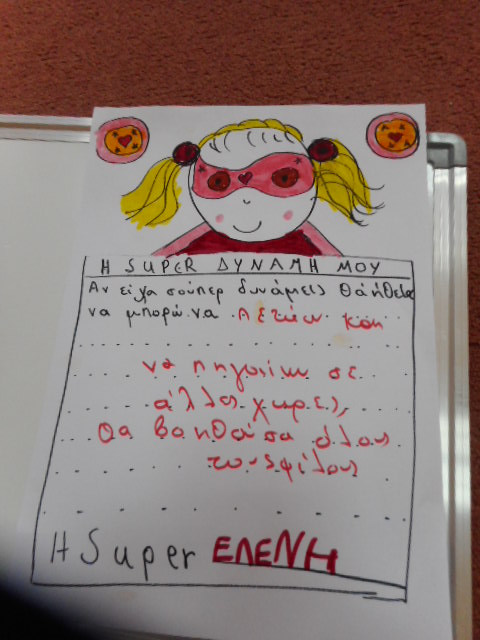 Η SUPER ΔΥΝΑΜΗ ΜΟΥ
Αν είχα σούπερ δυνάμεις θα ήθελα
να μπορώ να πετάω και
να πηγαίνω σε
άλλες χώρες,
θα βοηθάσα όλους
τους φίλους
Η Super ΕΛΕΝΗ